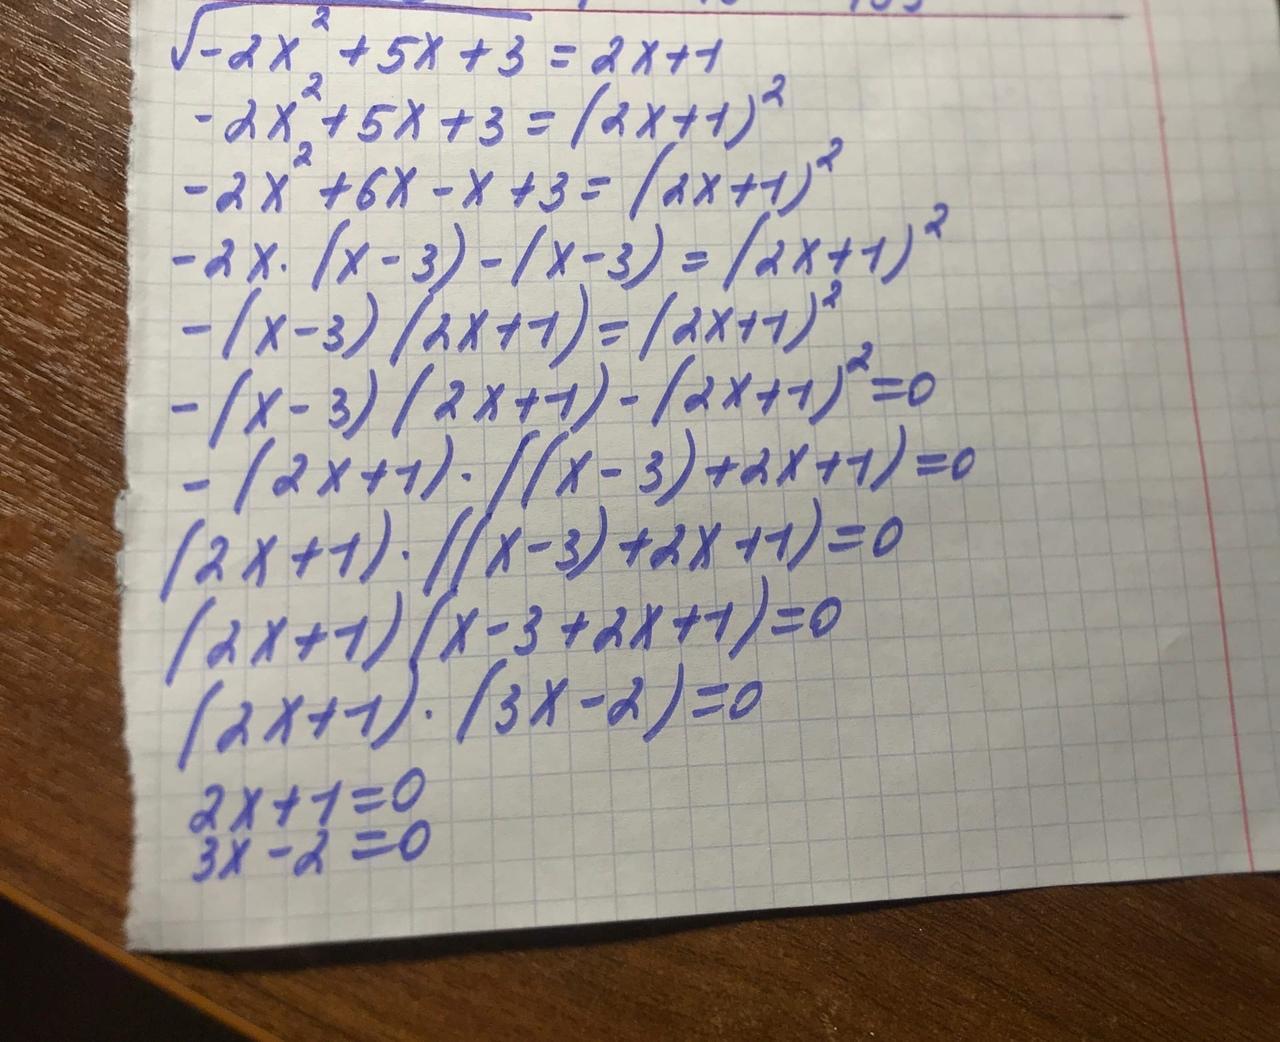 √-2x²+5x+3 = 2x+1
-2x²+5x+3 = (2x+1)²
-2x²+6x-x+3 = (2x+1)²
-2x·(x-3)-(x-3) = (2x+1)²
-(x-3)(2x+1) = (2x+1)²
-(x-3)(2x+1)-(2x+1)²=0
-(2x+1)·((x-3)+2x+1)=0
(2x+1)·((x-3)+2x+1)=0
(2x+1)(x-3+2x+1)=0
(2x+1)·(3x-2)=0
2x+1=0
3x-2=0